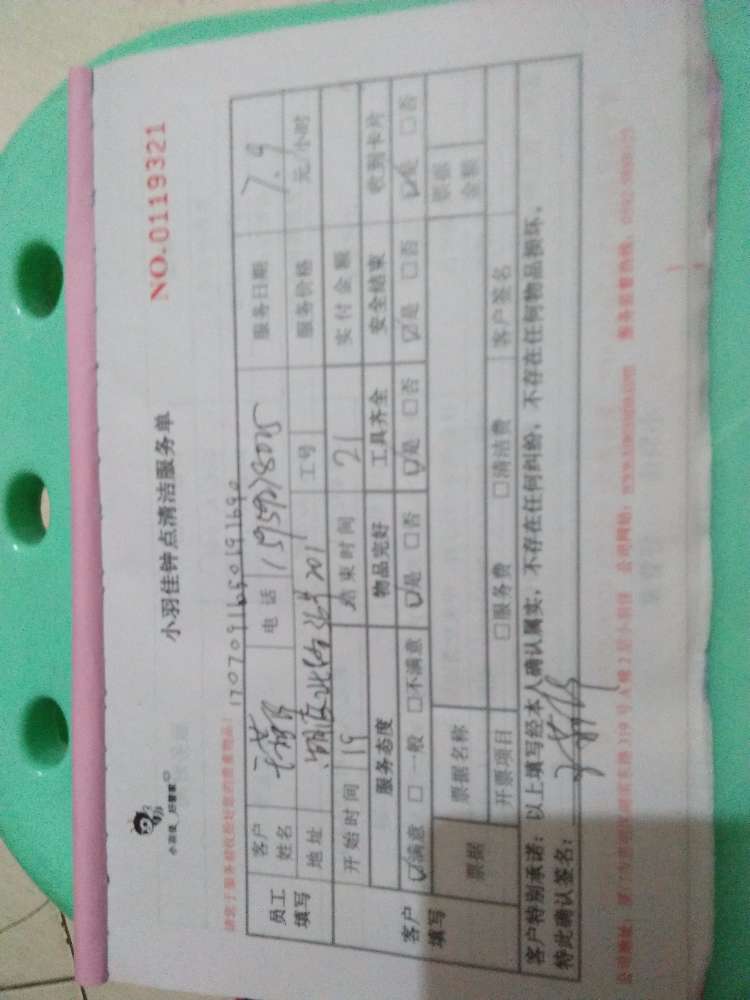 小羽佳 好管家
小羽佳钟点清洁服务单
NO.0119321
请您于服务前收捡好您的贵重物品!
17070911650191690
员工填写
客户姓名
电话 15959278075
服务日期 7.9
地址
201
工号
服务价格 元/小时
开始时间 19
结束时间 21
实付金额
客户填写
服务态度
物品完好
工具齐全
安全结束
收到卡片
☑满意 □一般 □不满意
☑是 □否
☑是 □否
☑是 □否
☑是 □否
票据
票据名称
票据金额
开票项目
□服务费 □清洁费
客户签名
客户特别承诺:以上填写经本人确认属实,不存在任何纠纷,不存在任何物品损坏,
特此确认签名: